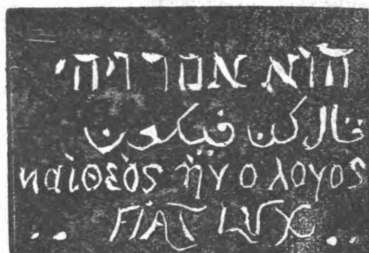 הוא אמר ויהי
قال كن فيكون
καὶ θεὸς ἦν ο λογος
FIAT LUX